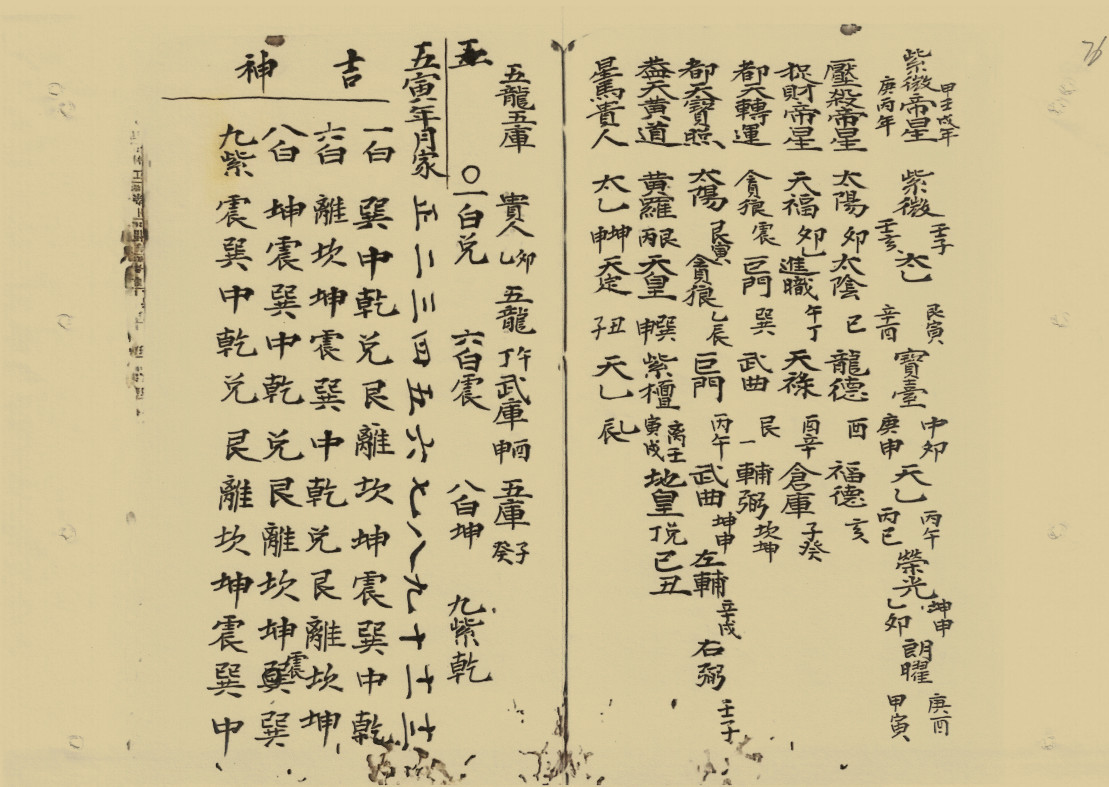 76
紫微帝星 甲壬戊年 庚丙年 紫微 壬子 壬亥 太乙 艮寅 辛酉 寶臺 中卯 庚申 天乙 丙午 丙巳 榮光 坤申 乙卯 朗曜 庚酉 甲寅
壓殺帝星 太陽 卯 太陰 巳 龍德 酉 福德 亥
捉財帝星 天福 卯乙 進職 午丁 天祿 酉辛 倉庫 子癸
都天轉運 貪狼 震 巨門 巽 武曲 艮 一 輔弼 坎坤
都天寶照 太陽 艮寅 貪狼 乙辰 巨門 丙午 武曲 坤申 左輔 辛戌 右弼 壬子
蓋天黃道 黃羅 艮丙 天皇 巽申 紫檀 离壬寅戌 地皇 丁兌巳丑
星馬貴人 太乙 坤申 天定 丑子 天乙 辰
五龍五庫 貴人 卯乙 五龍 午丁 武庫 酉申 五庫 子癸
五 〇一白兌 六白震 八白坤 九紫乾
五寅年月家 正 二 三 四 五 六 七 八 九 十 十一 十二
吉神
一白 巽 中 乾 兌 艮 離 坎 坤 震 巽 中 乾
六白 離 坎 坤 震 巽 中 乾 兌 艮 離 坎 坤
八白 坤 震 巽 中 乾 兌 艮 離 坎 坤 震 巽
九紫 震 巽 中 乾 兌 艮 離 坎 坤 震 巽 中